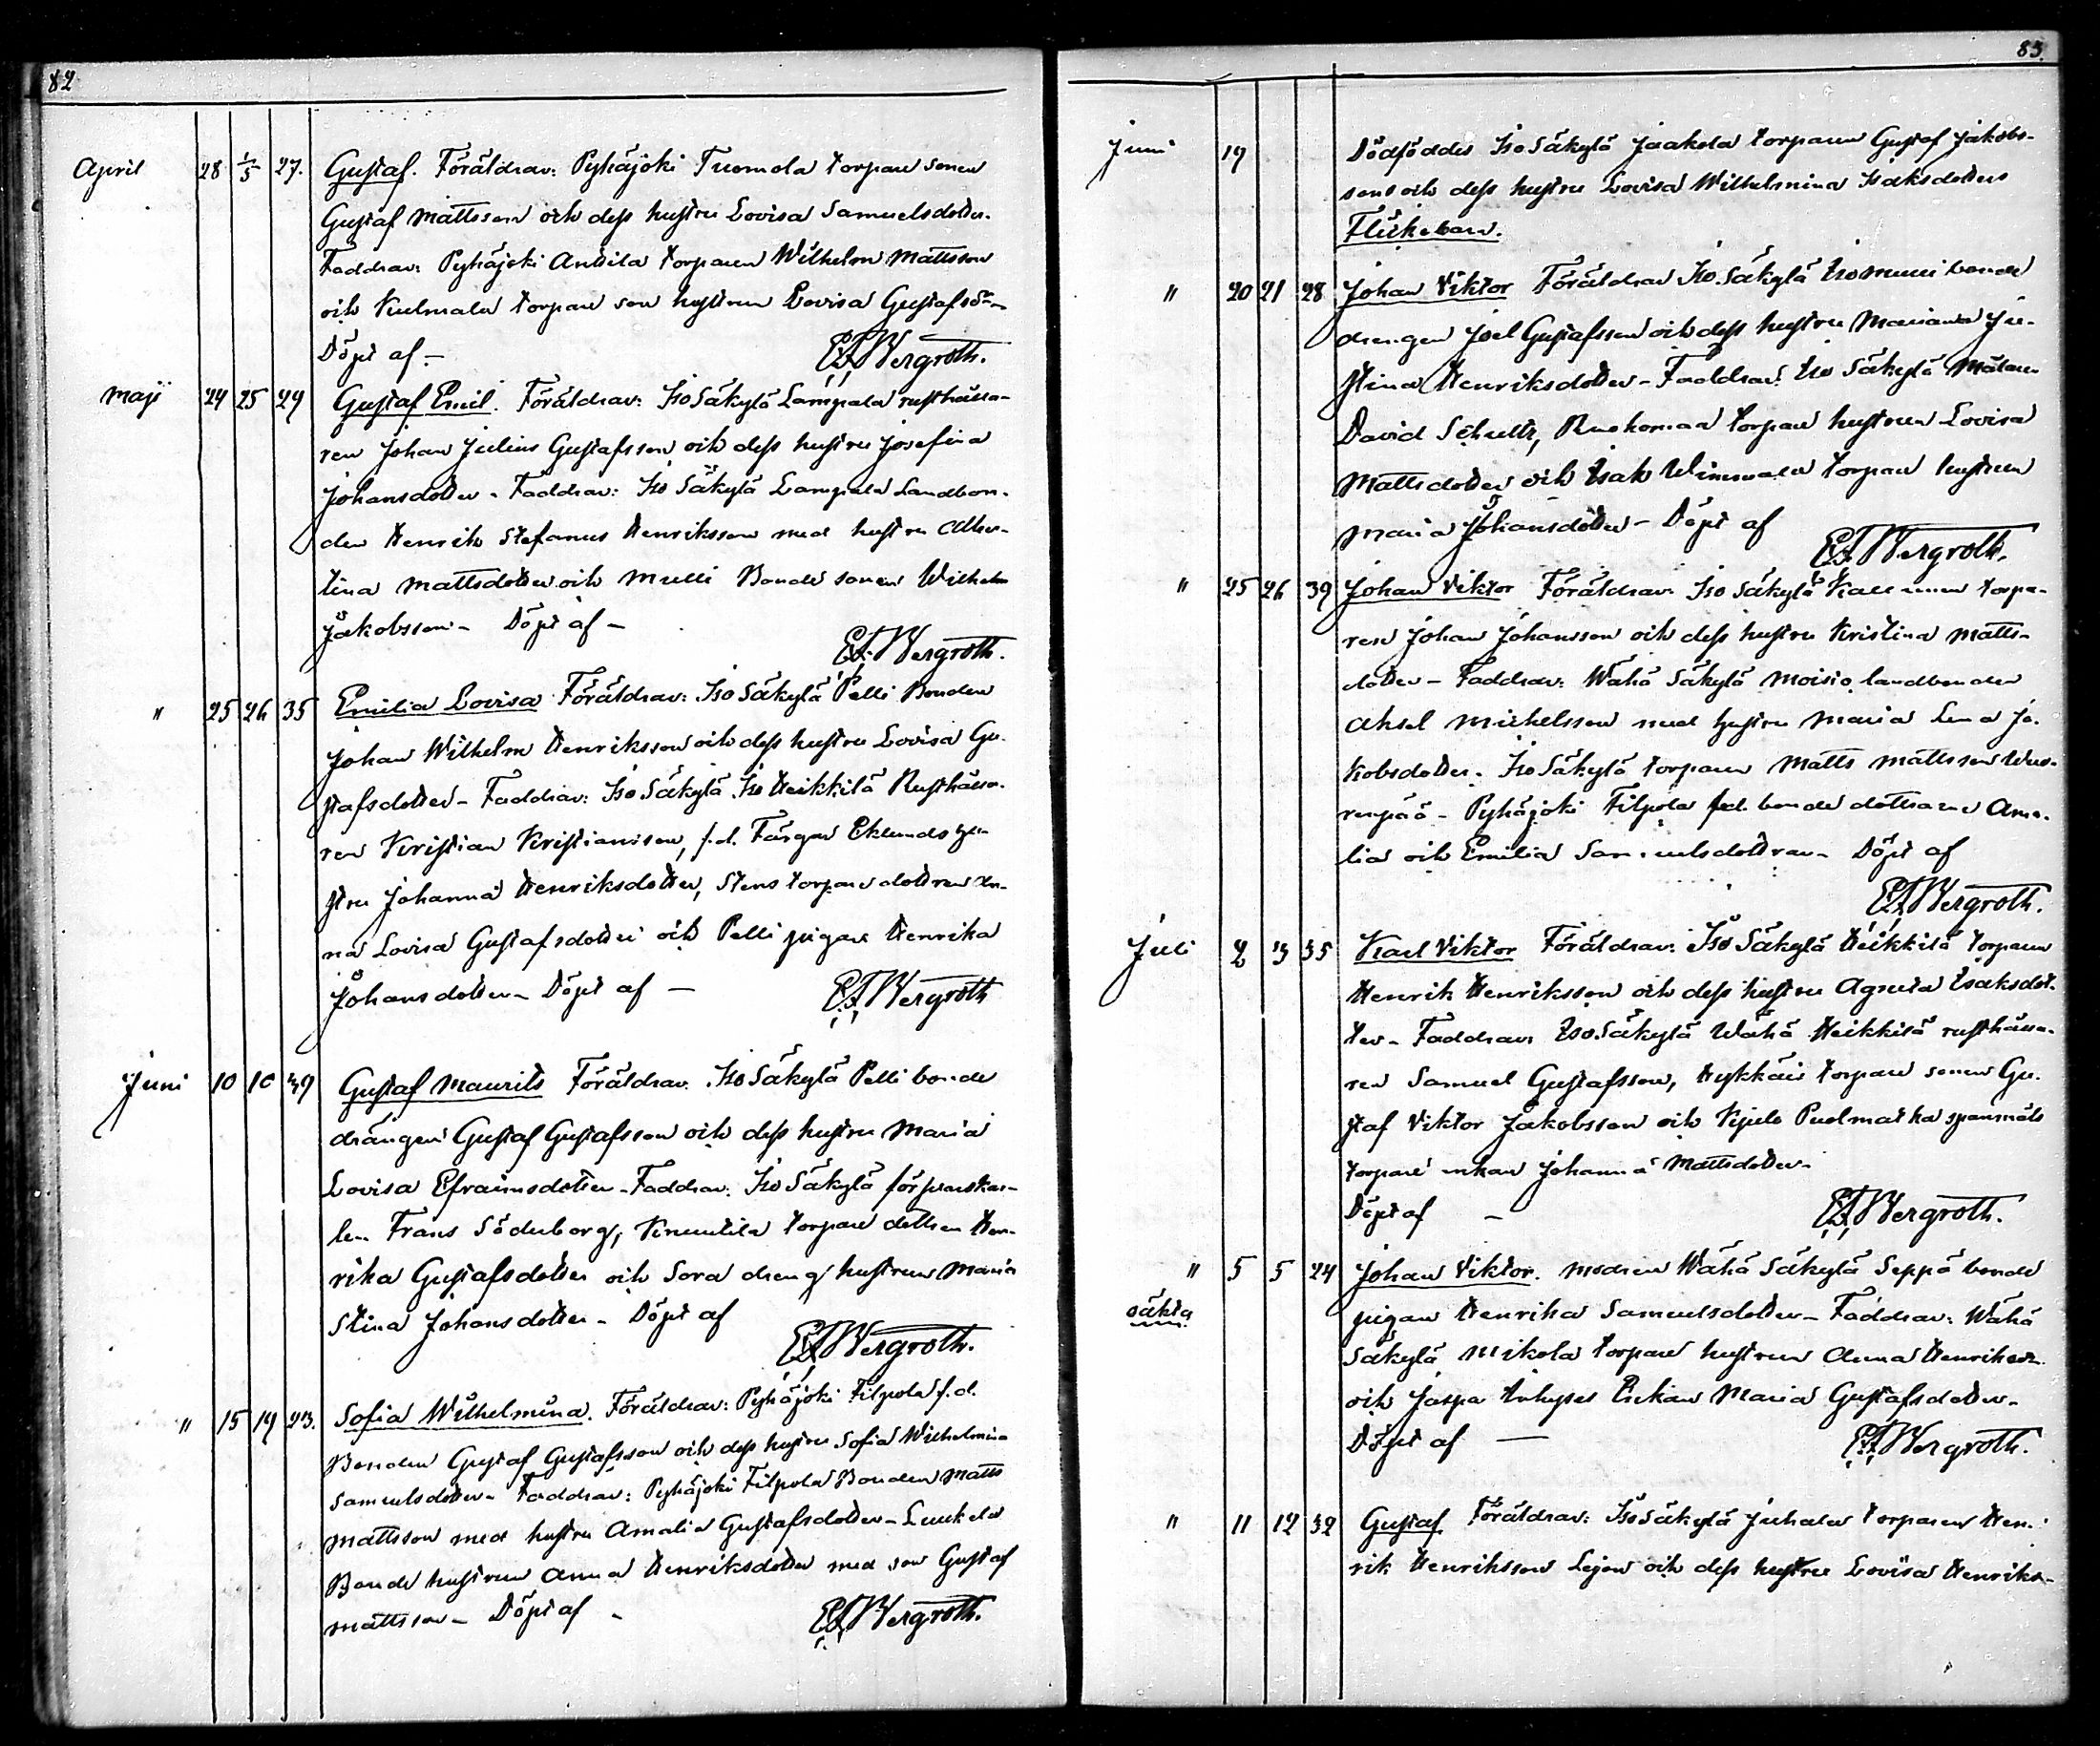 82
April 28 1/5 27. Gustaf. Föräldrar: Pyhäjoki Tuomola torpare sonen
Gustaf Mattsson och dess hustru Lovisa Samuelsdotter.
Faddrar: Pyhäjoki Anttila torparen Wilhelm Mattsson
och Kulmala torpare son hustrun Lovisa Gustafsdr
Döpt af – E.F. Bergroth.
Maji 24 25 29 Gustaf Emil. Föräldrar: Iso Säkylä Lampala rusthålla-
ren Johan Julius Gustafsson och dess hustru Josefina
Johansdotter – Faddrar: Iso Säkylä Lampala Landbon-
den Henrik Stefanus Henriksson med hustru Alber-
tina Mattsdotter och Mulli Bonde sonen Wilhelm
Jakobsson – Döpt af –
E.F. Bergroth.
" 25 26 35 Emilia Lovisa Föräldrar: Iso Säkylä Pelli Bonden
Johan Wilhelm Henriksson och dess hustru Lovisa Gu-
stafsdotter – Faddrar: Iso Säkylä Iso Heikkilä Rusthålla-
ren Kristian Kristiansson, f.d. Färgar Eklunds hu-
stru Johanna Henriksdotter, Stens torpare dottren An-
na Lovisa Gustafsdotter och Pelli pigan Henrika
Johansdotter – Döpt af – E.F. Bergroth
Juni 10 10 39 Gustaf Maurits Föräldrar: Iso Säkylä Pelli bonde
drängen Gustaf Gustafsson och dess hustru Maria
Lovisa Efraimsdotter – Faddrar: Iso Säkylä förswarskar-
len Frans Söderborg, Knuutila torpare dottren Hen-
rika Gustafsdotter och Sora dreng hustrun Maria
Stina Johansdotter – Döpt af
E.F. Bergroth.
" 15 19 23. Sofia Wilhelmina. Föräldrar: Pyhäjoki Filpola f.d.
Bonden Gustaf Gustafsson och dess hustru Sofia Wilhelmina
Samuelsdotter – Faddrar: Pyhäjoki Filpola Bonden Matts
Mattsson med hustru Amalia Gustafsdotter – Luukela
Bonde hustrun Anna Henriksdotter med son Gustaf
Mattsson – Döpt af – E.F. Bergroth.
83.
Juni 19 Dödföddes Iso Säkylä Jaakola torparen Gustaf Jakobs-
sons och dess hustru Lovisa Wilhelmina Isaksdotters
Flickebarn.
" 20 21 28 Johan Viktor Föräldrar Iso Säkylä bonde
drengen Joel Gustafsson och dess hustru Mariana Ju-
stina Henriksdotter – Faddrar: Iso Säkylä Målaren
David Schultz, Ruokomaa torpare hustrun Lovisa
Mattsdotter och Isak torpare hustrun
Maria Johansdotter – Döpt af
E.F. Bergroth.
" 25 26 39 Johan Viktor Föräldrar Iso Säkylä torpa-
ren Johan Johansson och dess hustru Kristina Matts-
dotter – Faddrar: Wähä Säkylä Moisio landbonden
Aksel Mickelsson med hustru Maria Lena Ja-
kobsdotter. Iso Säkylä torparen Matts Mattsson Wuo-
renpää – Pyhäjoki Filpola f.d. bonde döttrarne Ama-
lia och Emilia Samuelsdöttrar – Döpt af
E.F. Bergroth.
Juli 2 3 35 Karl Viktor Föräldrar: Iso Säkylä Heikkilä torparen
Henrik Henriksson och dess hustru Agneta Isaksdot-
ter – Faddrar: Iso Säkylä Wähä Heikkilä rusthålla-
ren Samuel Gustafsson, torpare sonen Gu-
staf Viktor Jakobsson och Kjulo Puolmatka spanmåls
torpare enkan Johanna Mattsdotter –
Döpt af – E.F. Bergroth.
" 5 5 24 Johan Viktor. Modren Wähä Säkylä Seppä bonde
oäkta pigan Henrika Samuelsdotter – Faddrar: Wähä
Säkylä Mikola torpare hustrun Anna Henriksdr.
och Jaspa Inhyses Enkan Maria Gustafsdotter –
Döpt af — E.F. Bergroth.
" 11 12 32 Gustaf Föräldrar: Iso Säkylä Juhala torparen Hen-
rik Henriksson Lejon och dess hustru Lovisa Henriks-